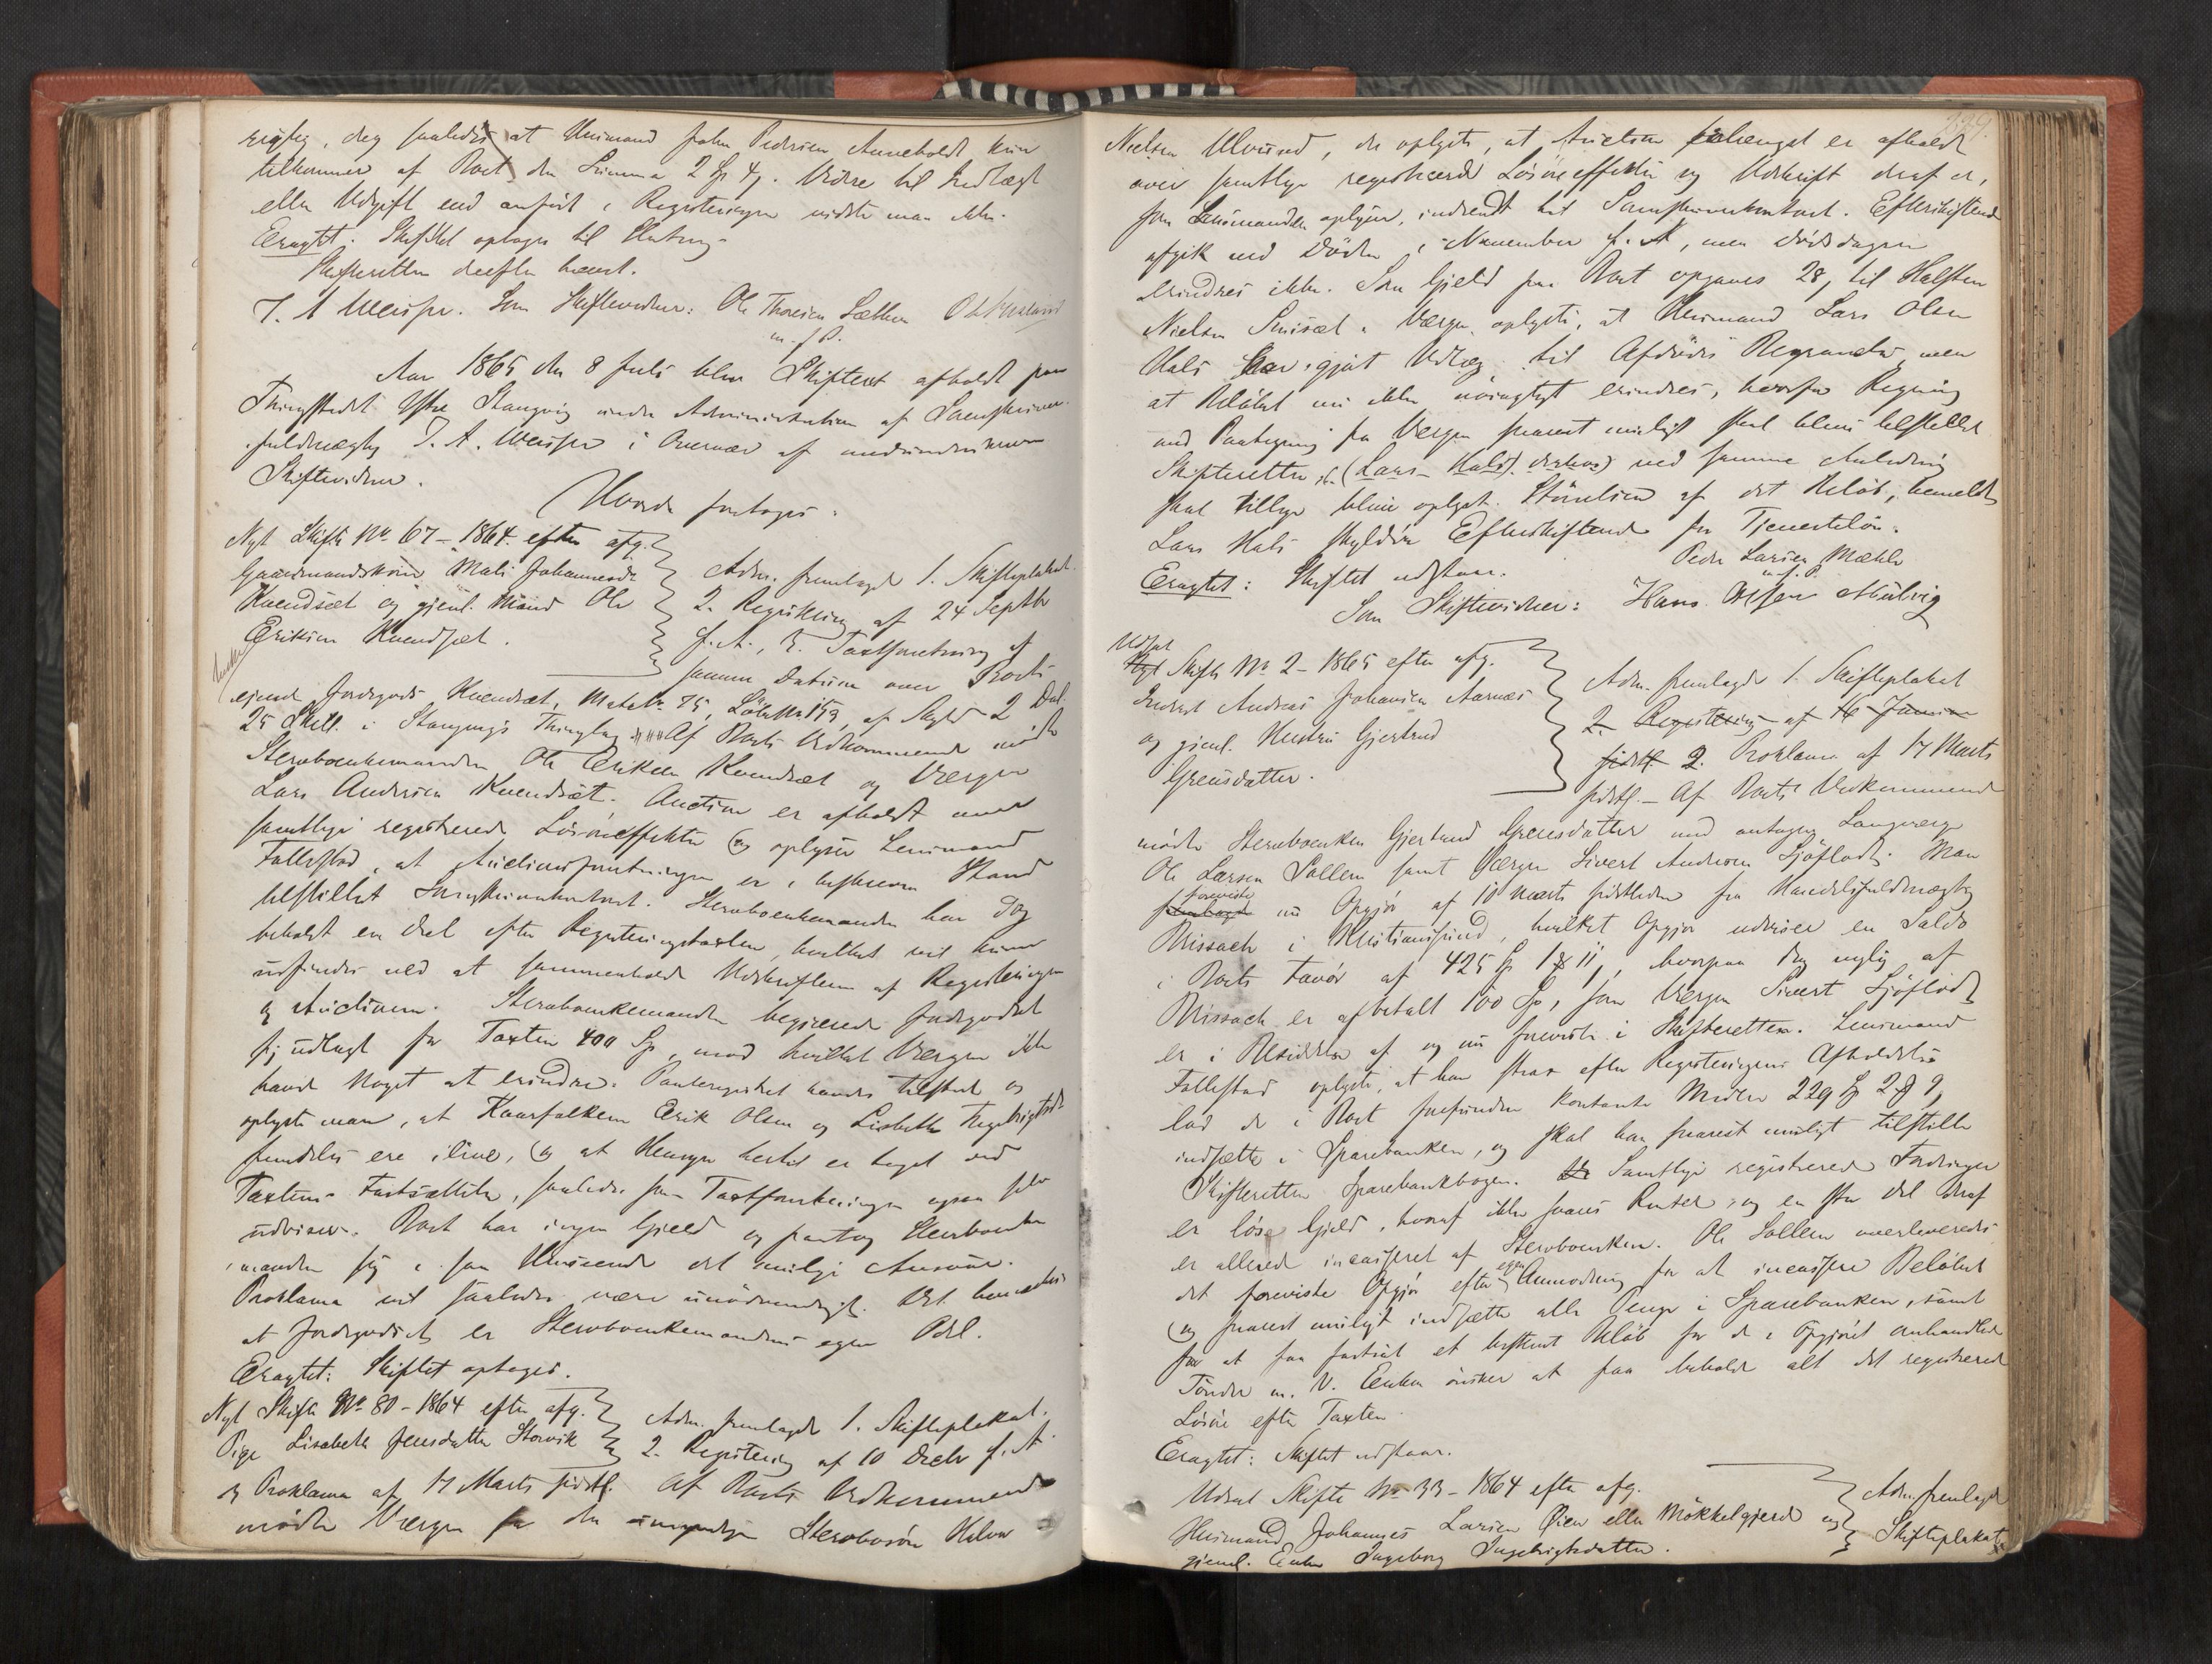 rigtig, dog saaledes at Huusmand John Pedersen Auneboldt kun
tilkommer af Boet den Summa 2 Sp 4 s. Videre til Indtægt
eller Udgift end anført i Registeringen vidste man ikke.
Eragtet: Skiftet optages til Slutning.
Skifteretten derefter hævet.
J. A. Weisser. Som Skiftevidner: Ole Thoresen Sæther
m. f. P.
Aar 1865 den 8 Juli blev Skifteret afholdt paa
Thingstedet Ytre Stangvig under Administration af Sorenskriver-
fuldmægtig J. A. Weisser i Overvær af medunderskrevne
Skiftevidner.
Hvorda foretoges:
Nyt Skifte No 67 - 1864 efter afg.
Gaardmandskone Mali Johannesdr
Kvendsæt og gjenl. Mand Ole
Eriksen Kvendsæt.
Adm. fremlagde 1. Skifteplakat.
2. Registering af 24 Septbr
f. A., 3. Taxtforretning af
samme Datum over Boets
eiende Jordegods Kvendsæt, Matr. No 75, Løbe No 159, af Skyld 2 Dal.
25 Skill. i Stangvigs Thinglag. Af Boets Vedkommende mødte
Stervboenkemanden Ole Eriksen Kvendsæt og Værgen
Lars Andersen Kvendsæt. Auction er afholdt over
samtlige registrerede Løsøreffekter og oplyser Lensmand
Fallestad, at Auctionsforretningen er i beskreven Stand
tilstillet Sorenskriverkontoret. Stervboenkemanden har dog
beholdt en Deel efter Registeringstaxten, hvilket vil kunne
udfindes ved at sammenholde Udskrifterne af Registeringen
og Auctionen. Stervboenkemanden begjærede Jordegodset
sig udlagt for Taxten 400 Sp, mod hvilket Værgen ikke
havde Noget at erindre. Panteregistret havdes tilstede og
oplyste man, at Kaarfolkene Erik Olsen og Lisbeth Ingebrigtsdr
fremdeles ere ilive, og at Hensyn hertil er taget ved
Taxtens Fastsættelse, saaledes som Taxtforretningen ogsaa selv
udviser. Boet har ingen Gjæld og paatog Stervboenke-
manden sig i saa Henseende det mulige Ansvar.
Proklama vil saaledes være unødvendigt. Det bemærkes
at Jordegodset er Stervboenkemandens egen Odel.
Eragtet: Skiftet optages.
Nyt Skifte No 80 - 1864 efter afg.
Pige Lisabeth Jensdatter Storvik
Adm. fremlagde 1. Skifteplakat.
2. Registering af 10 Decbr f. A.
3 Proklama af 17 Marts sidstl. Af Boets Vedkommende
mødte Værgen for den umyndige Stervbosøn Halvor
Nielsen Ulvund, der oplyste, at Auction forlængst er afholdt
over samtlige registrerede Løsøreffekter og Udskrift deraf er,
som Lensmanden oplyser, indsendt til Sorenskriverkontoret. Efterskiftende
afgik ved Døden i November f. A, men Dødsdagen
erindres ikke. Som Gjeld paa Boet opgaves 28 s til Halsten
Nielsen Smisæt. Værgen oplyste, at Huusmand Lars Olsen
Hals har gjort Udlæg til Afdødes Begravelse, men
at Beløbet nu ikke nøiagtigt erindres, hvorfor Regning
med Paategning fra Værgen snarest muligt skal blive tilstillet
Skifteretten, (Lars Hals) ved samme Anledning
skal tillige blive oplyst Størrelsen af det Beløb, bemeldte
Lars Hals skylder Efterskiftende for Tjenesteløn.
Eragtet: Skiftet udstaar.
Peder Larsen Mæhle
m. f. P.
Som Skiftevidner: Hans Olsen
Udsat
Nyt Skifte No 2 - 1865 efter afg.
Andreas Johansen Aarnæs
og gjenl. Hustru Gjertrud
Grensdatter.
Adm. fremlagde 1. Skifteplakat
2. Registering af 16 Januar
sidstl. 2. Proklama af 17 Marts
sidstl. - Af Boets Vedkommende
mødte Stervboenken Gjertrud Grensdatter med antagen Laugværge
Ole Larsen Sollem samt Værgen Sivert Andersen Sjøflodt. Man
foreviste
fremlagde nu Opgjør af 10 Marts sidstleden fra Handelsfuldmægtig
Brissach i Kristianssund, hvilket Opgjør udviser en Saldo
i Boets Favør af 425 Sp 1 11 s, hvorpaa dog nylig af
Brissach er afbetalt 100 Sp, som Værgen Sivert Sjøflodt
er i Besiddelse af og nu foreviste i Skifteretten. Lensmand
Fallestad oplyste, at han strax efter Registeringens Afholdelse
lod de i Boet forefundne kontante Midler 229 Sp 2 9 s
indsætte i Sparebanken, og skal han snarest muligt tilstille
Skifteretten Sparebankbogen. Samtlige registrerede Fordringer
er løse Gjeld, hvoraf ikke svares Renter, og en stor del deraf
er allerede incasseret af Stervboenken. Ole Sollem overleveredes
det foreviste Opgjør efter egen Anmodning for at incassere Beløbet
og snarest muligt indsætte alle Penge i Sparebanken, samt
for at faa fastsat et bestemt Beløb for de i Opgjøret omhandlede
Tønder m. V. Enken ønsker at faa beholde alt det registrerede
Løsøre efter Taxten.
Eragtet: Skiftet udstaar.
Udsat Skifte No 33 - 1864 efter afg.
Huusmand Johannes Larsen Øien eller Møkkelgjerd og
gjenl. Enke Ingeborg Ingebrigtsdatter.
Adm. fremlagde
Skifteplakat